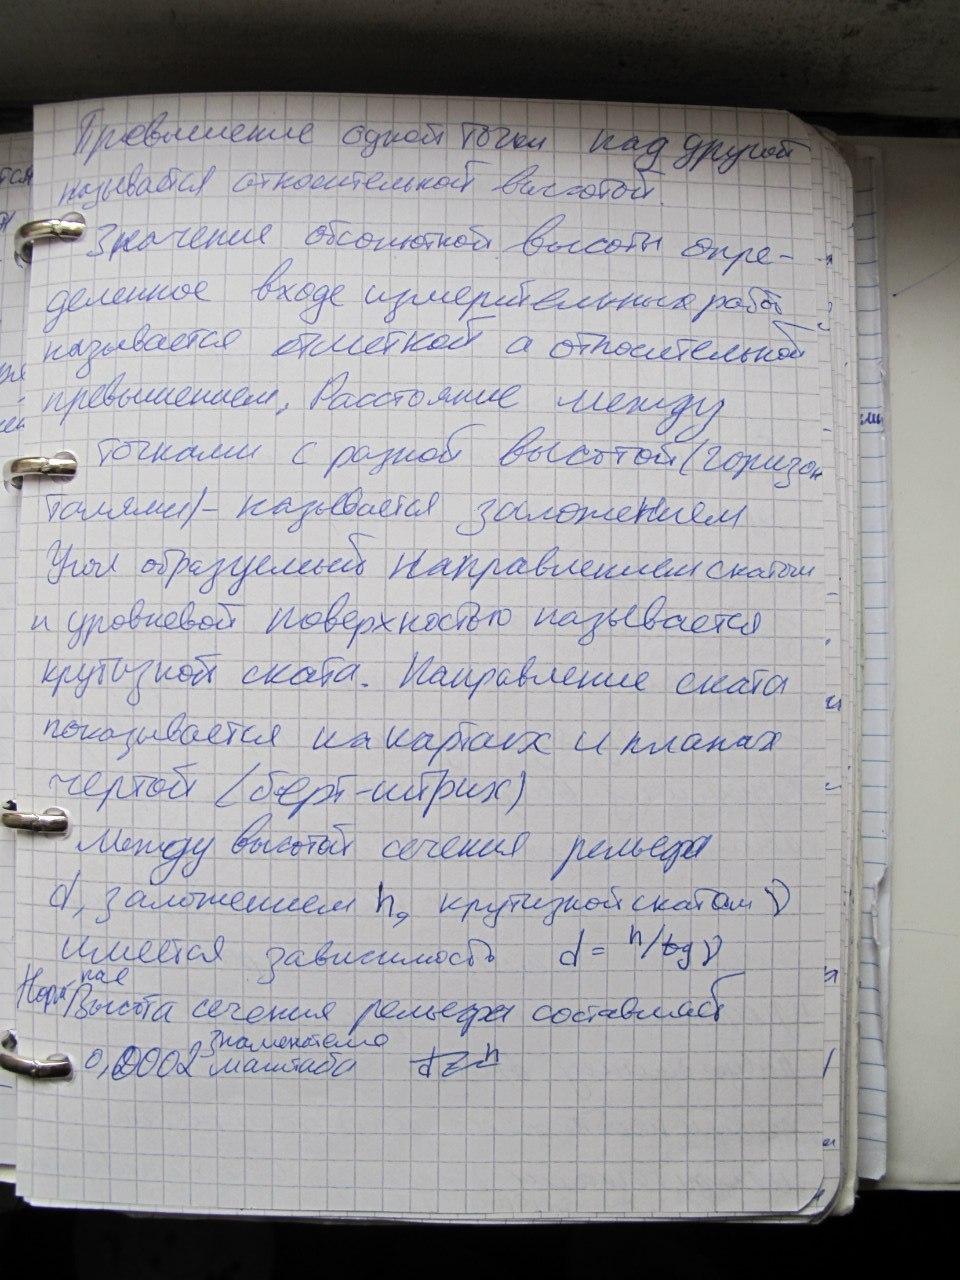 Превышение одной точки над другой
называется относительной высотой.
Значение абсолютной высоты опре-
деленное входе измерительных работ
называется отметкой а относительной
превышением. Расстояние между
точками с разной высотой (горизон
талями) - называется заложением
Угол образуемый направлением скатом
и уровневой поверхностью называется
крутизной ската. Направление ската
показывается на картах и планах
чертой (берг-штрих)
Между высотой сечения рельефа
d, заложением h, крутизной скатом ν
имеется зависимость d = h/tg ν
Нормальная
Высота сечения рельефа составляет
знаменателя
0,0002 масштаба